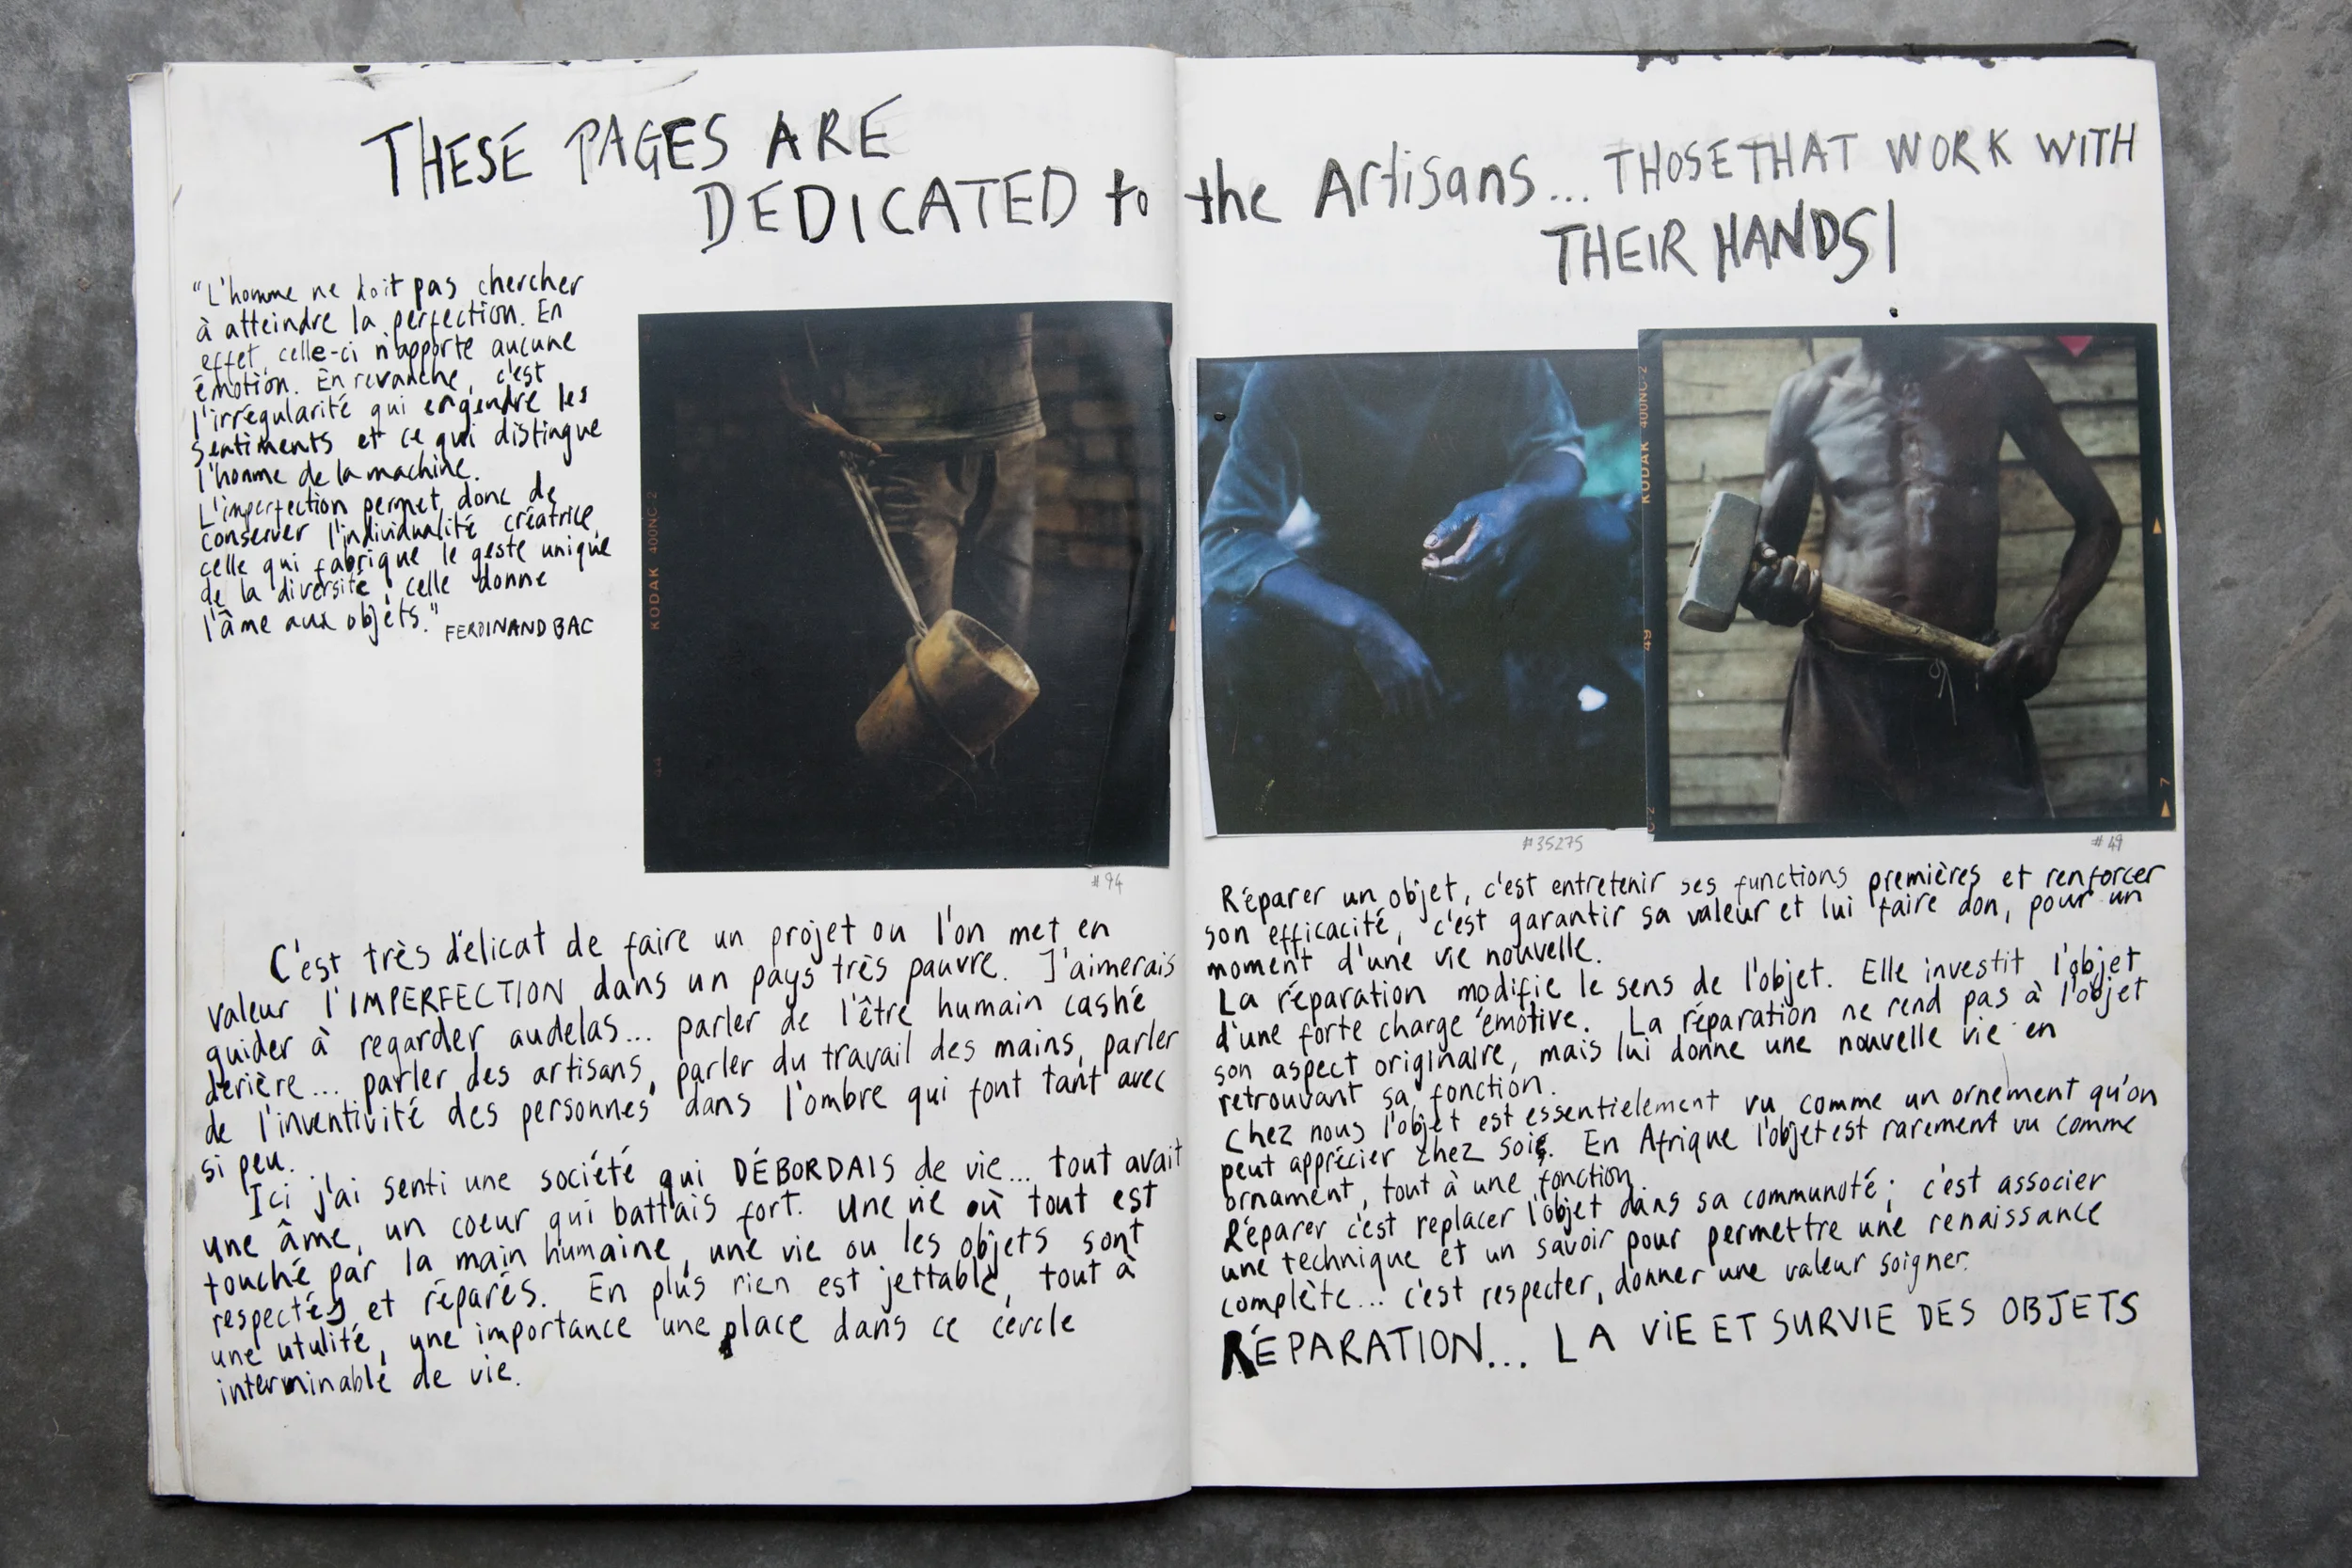 THESE PAGES ARE
DEDICATED to the Artisans... THOSE THAT WORK WITH
THEIR HANDS!
"L'homme ne doit pas chercher
à atteindre la perfection. En
effet, celle-ci n'apporte aucune
émotion. En revanche, c'est
l'irrégularité qui engendre les
sentiments et ce qui distingue
l'homme de la machine.
L'imperfection permet, donc de
conserver l'individualité créatrice,
celle qui fabrique le geste unique
de la diversité, celle donne
l'âme aux objets." FERDINAND BAC
KODAK 400NC-2
44
#94
C'est très délicat de faire un projet ou l'on met en
valeur l'IMPERFECTION dans un pays très pauvre. J'aimerais
guider à regarder audelas... parler de l'être humain cashé
derière... parler des artisans, parler du travail des mains, parler
de l'inventivité des personnes dans l'ombre qui font tant avec
si peu.
Ici j'ai senti une société qui DÉBORDAIS de vie... tout avait
une âme, un coeur qui battais fort. Une vie où tout est
touché par la main humaine, une vie ou les objets sont
respectés et réparés. En plus rien est jettable, tout à
une utulité, une importance une place dans ce cercle
interminable de vie.
KODAK 400NC-2
49
7
#35275
#49
Réparer un objet, c'est entretenir ses functions premières et renforcer
son efficacité, c'est garantir sa valeur et lui faire don, pour un
moment d'une vie nouvelle.
La réparation modifie le sens de l'objet. Elle investit l'objet
d'une forte charge émotive. La réparation ne rend pas à l'objet
son aspect originaire, mais lui donne une nouvelle vie en
retrouvant sa fonction.
Chez nous l'objet est essentielement vu comme un ornement qu'on
peut apprécier chez soi. En Afrique l'objet est rarement vu comme
ornament, tout à une fonction.
Réparer c'est replacer l'objet dans sa communoté; c'est associer
une technique et un savoir pour permettre une renaissance
complète... c'est respecter, donner une valeur soigner.
RÉPARATION... LA VIE ET SURVIE DES OBJETS